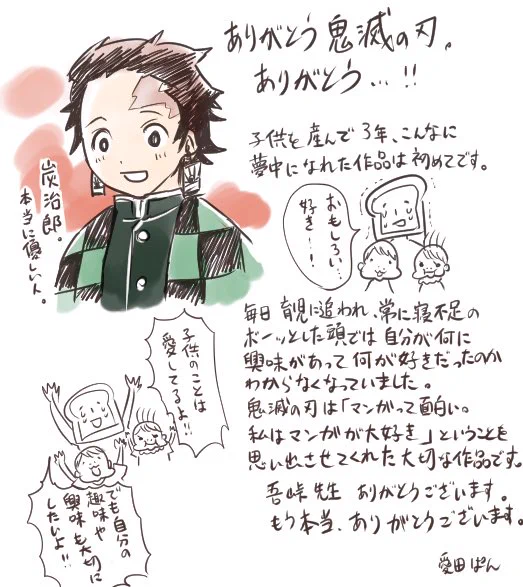 ありがとう鬼滅の刃。
ありがとう…!!
子供を産んで3年、こんなに
夢中になれた作品は初めてです。
炭治郎。
本当に優しい人。
おもしろい…
好き…!
毎日育児に追われ、常に寝不足の
ボーッとした頭では自分が何に
興味があって何が好きだったのか
わからなくなっていました。
鬼滅の刃は「マンガって面白い。
私はマンガが大好き」ということを
思い出させてくれた大切な作品です。
吾峠先生 ありがとうございます。
もう本当、ありがとうございます。
子供のことは
愛してるよ!!
でも自分の
趣味や
興味も大切に
したいよ!!
愛田ぱん